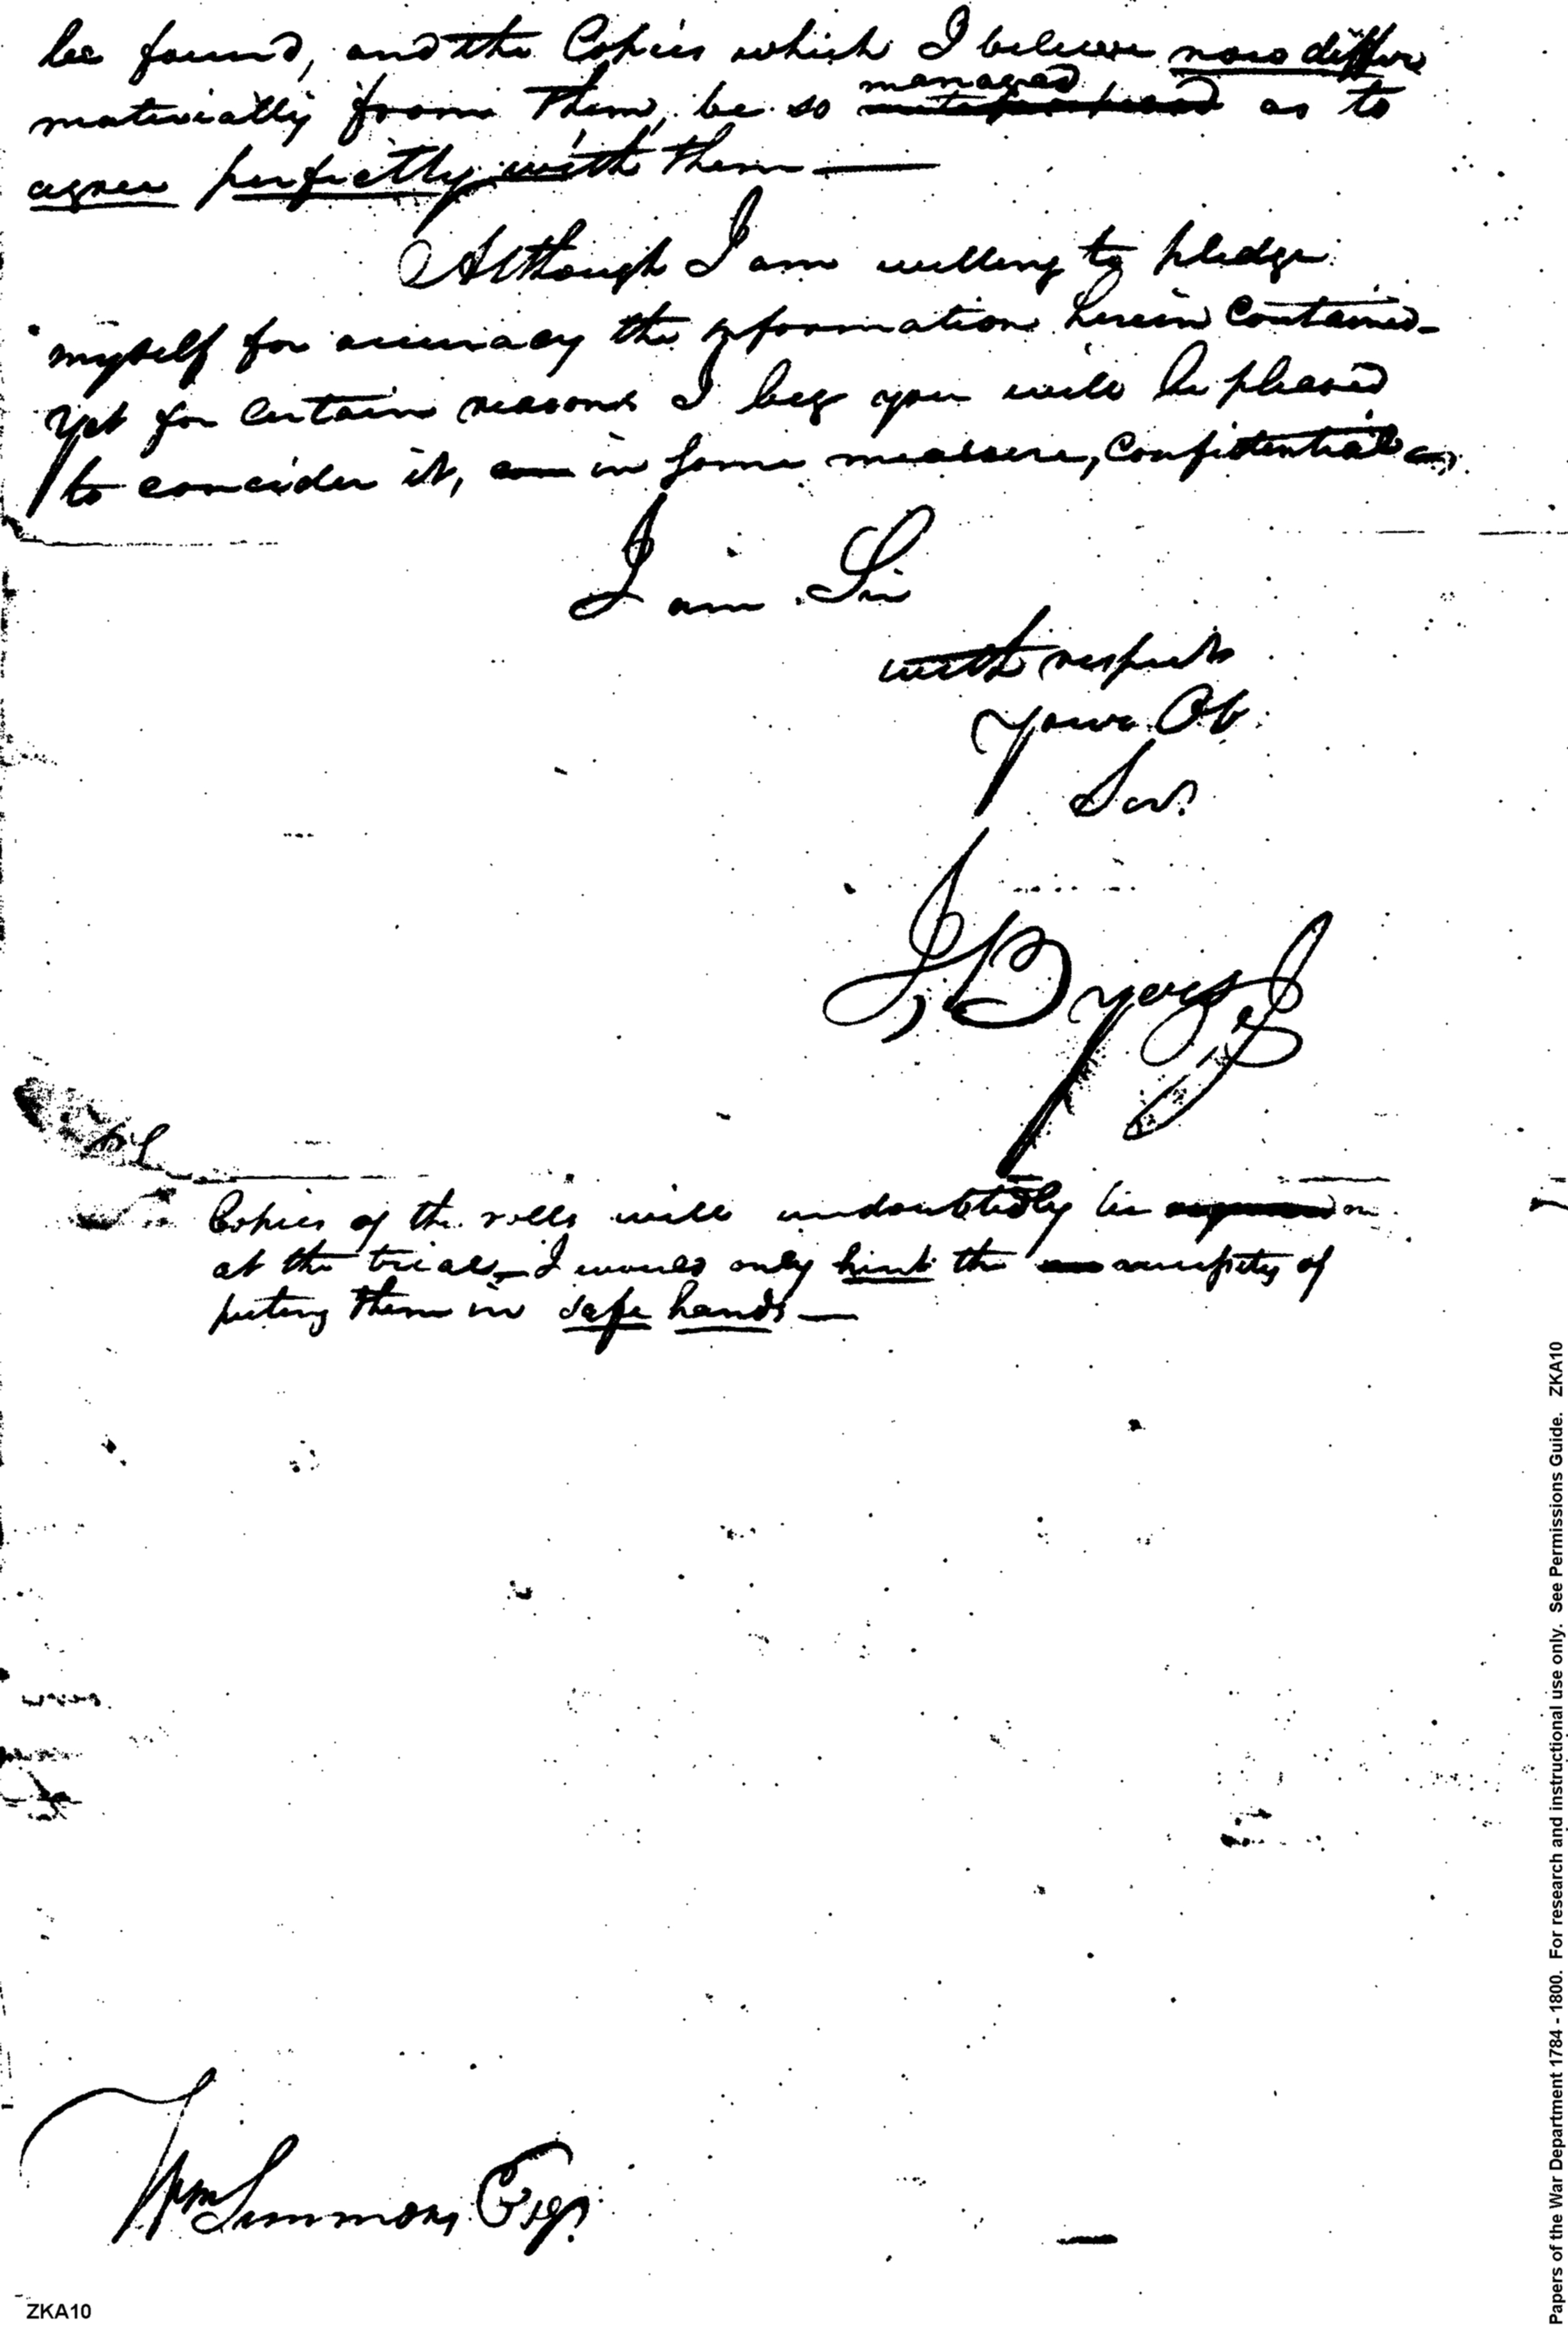 be found, and the Copies which I believe now differ
materially from them, be so managed as to
agree perfectly with them —
Although I am willing to pledge
myself for accuracy the information herein Contained-
yet for certain reasons I beg you will be pleased
to concider it, in some measure, Confidential
I am Sir
with respect
your Ob
Servt
J, Byers
Copies of the rolls will undoubtedly be
at the trial — I would only hint the necessity of
puting them in safe hands —
Wm Simmons Esqr.
ZKA10
Papers of the War Department 1784 - 1800. For research and instructional use only. See Permissions Guide. ZKA10